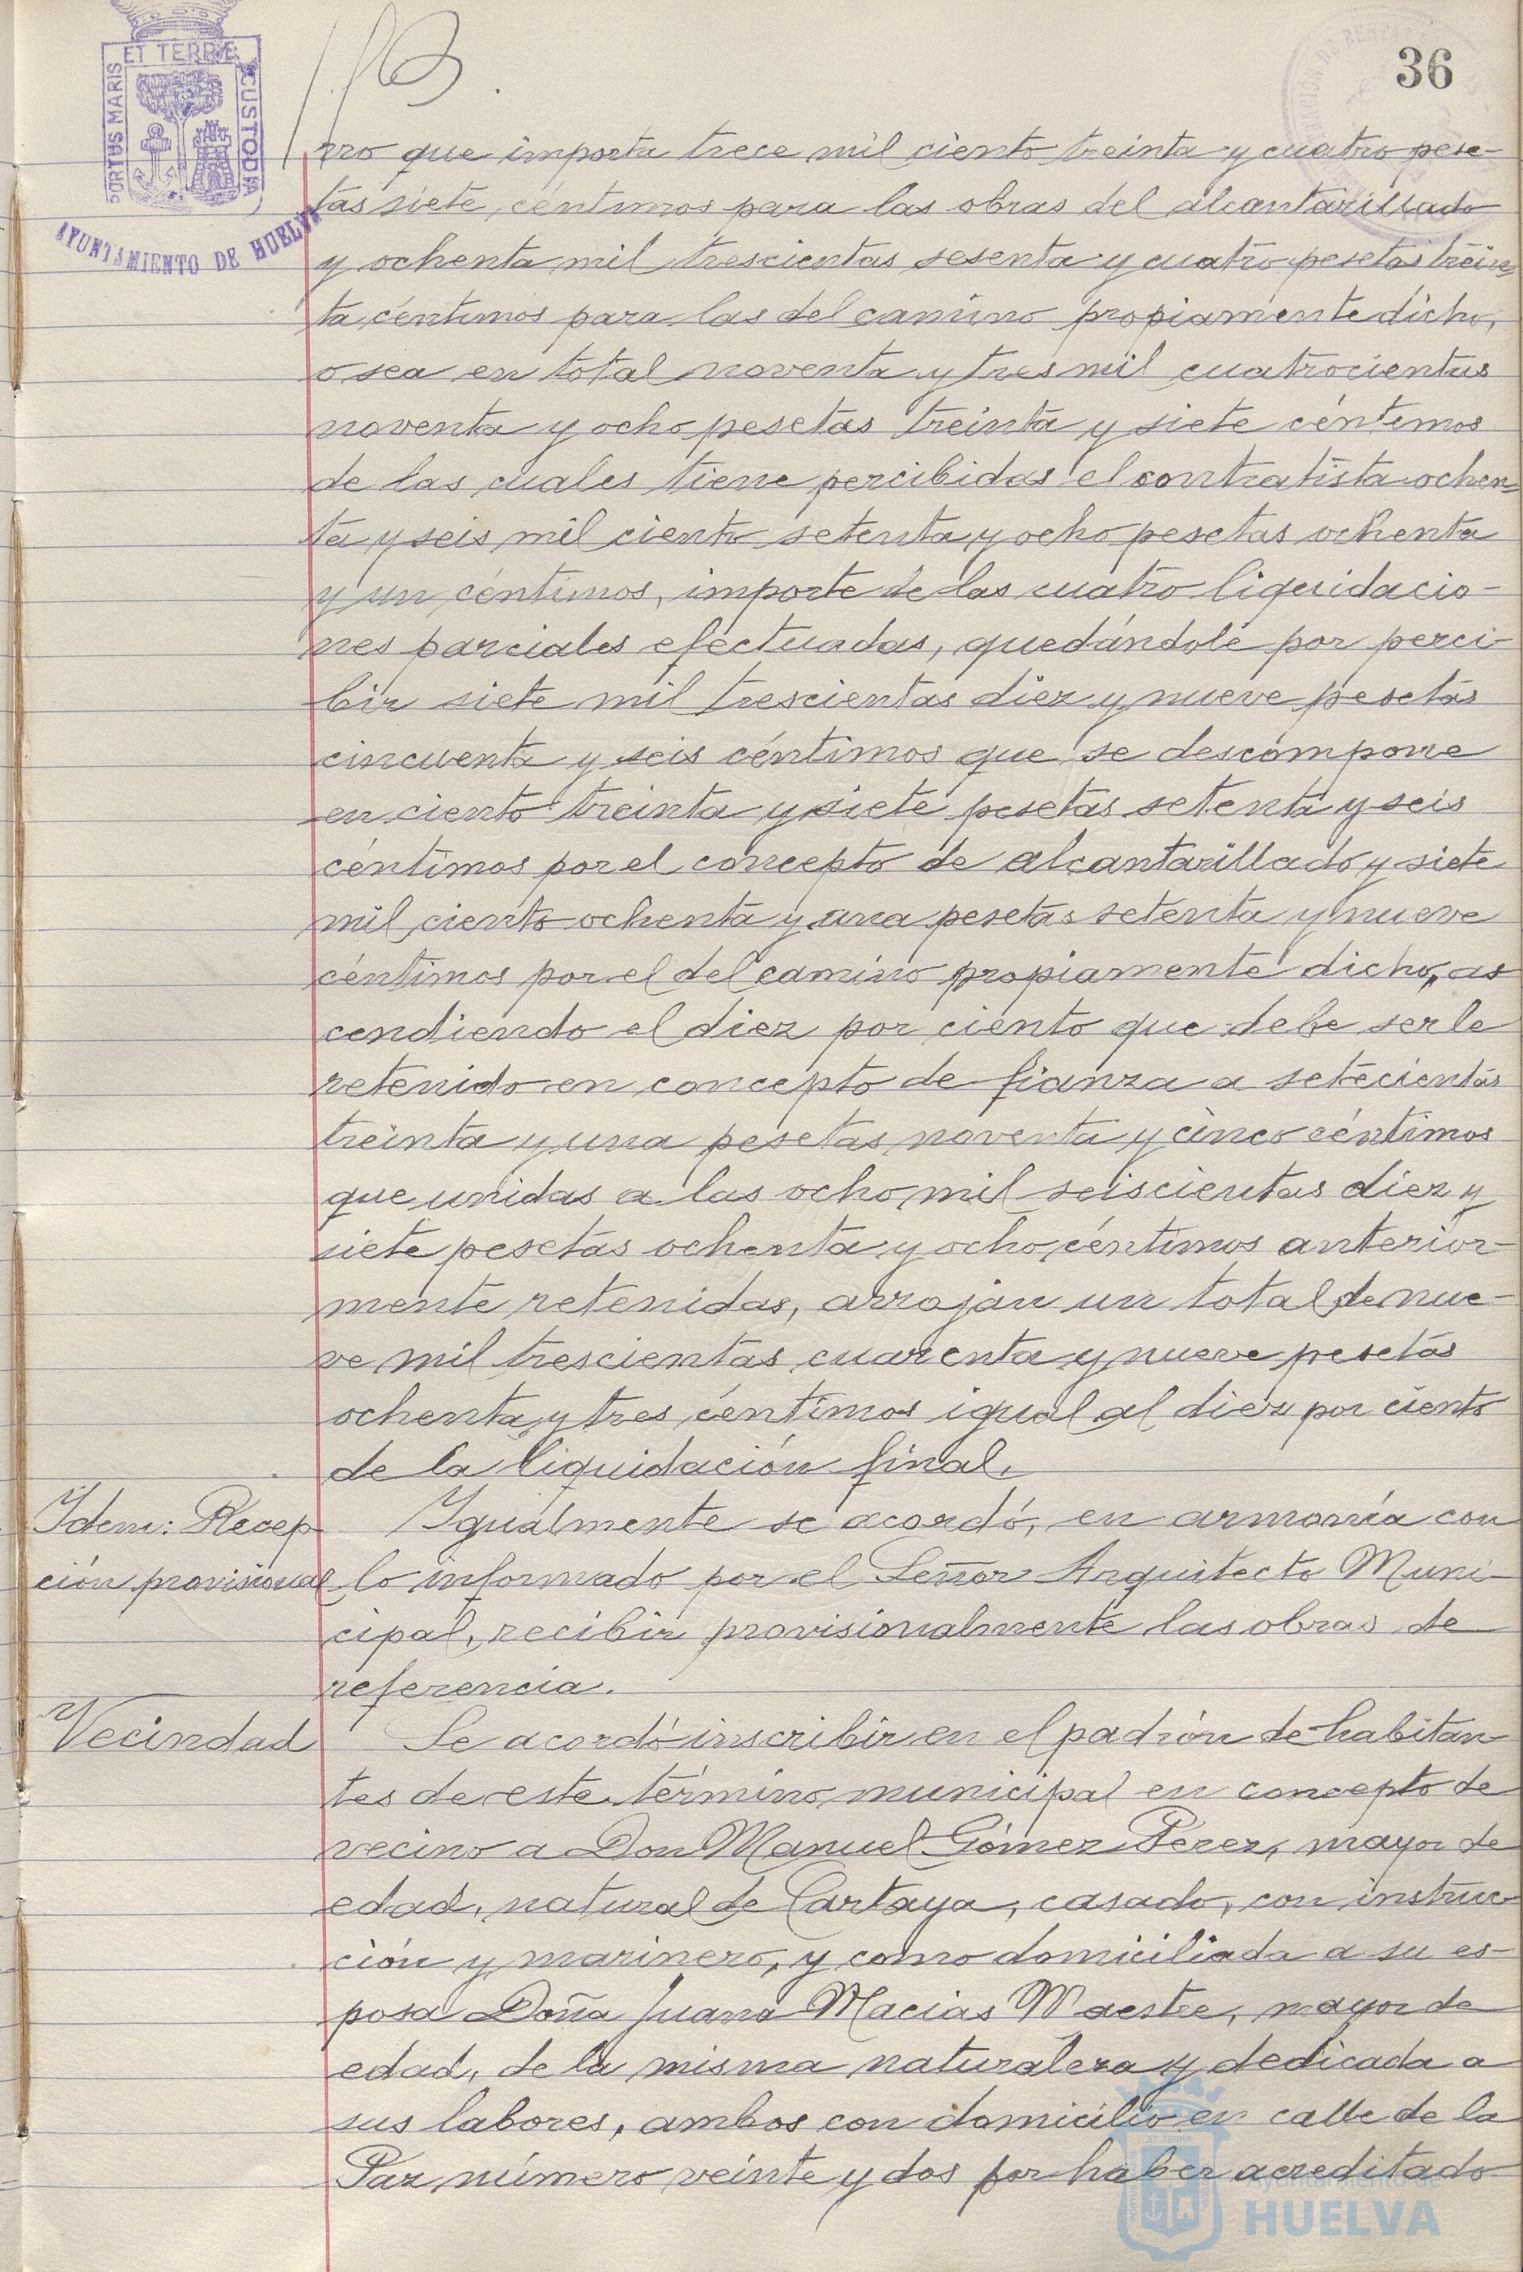 36
PORTUS MARIS ET TERRÆ CUSTODIA
AYUNTAMIENTO DE HUELVA
rro que importa trece mil ciento treinta y cuatro pese-
tas siete céntimos para las obras del alcantarillado
y ochenta mil trescientas sesenta y cuatro pesetas trein-
ta céntimos para las del camino propiamente dicho,
o sea en total noventa y tres mil cuatrocientas
noventa y ocho pesetas treinta y siete céntimos
de las cuales tiene percibidas el contratista ochen-
ta y seis mil ciento setenta y ocho pesetas ochenta
y un céntimos, importe de las cuatro liquidacio-
nes parciales efectuadas, quedándole por perci-
bir siete mil trescientas diez y nueve pesetas
cincuenta y seis céntimos que se descompone
en ciento treinta y siete pesetas setenta y seis
céntimos por el concepto de alcantarillado y siete
mil ciento ochenta y una pesetas setenta y nueve
céntimos por el del camino propiamente dicho, as
cendiendo el diez por ciento que debe serle
retenido en concepto de fianza a setecientas
treinta y una pesetas noventa y cinco céntimos
que unidas a las ocho mil seiscientas diez y
siete pesetas ochenta y ocho céntimos anterior-
mente retenidas, arrojan un total de nue-
ve mil trescientas cuarenta y nueve pesetas
ochenta y tres céntimos igual al diez por ciento
de la liquidación final.
Idem: Recep-
ción provisional
Igualmente se acordó, en armonía con
lo informado por el Señor Arquitecto Muni-
cipal, recibir provisionalmente las obras de
referencia.
Vecindad
Se acordó inscribir en el padrón de habitan-
tes de este término municipal en concepto de
vecino a Don Manuel Gómez Perez, mayor de
edad, natural de Cartaya, casado, con instruc-
ción y marinero, y como domiciliada a su es-
posa Doña Juana Macias Maestre, mayor de
edad, de la misma naturaleza y dedicada a
sus labores, ambos con domicilio en calle de la
Paz número veinte y dos por haber acreditado
Ayuntamiento de
HUELVA